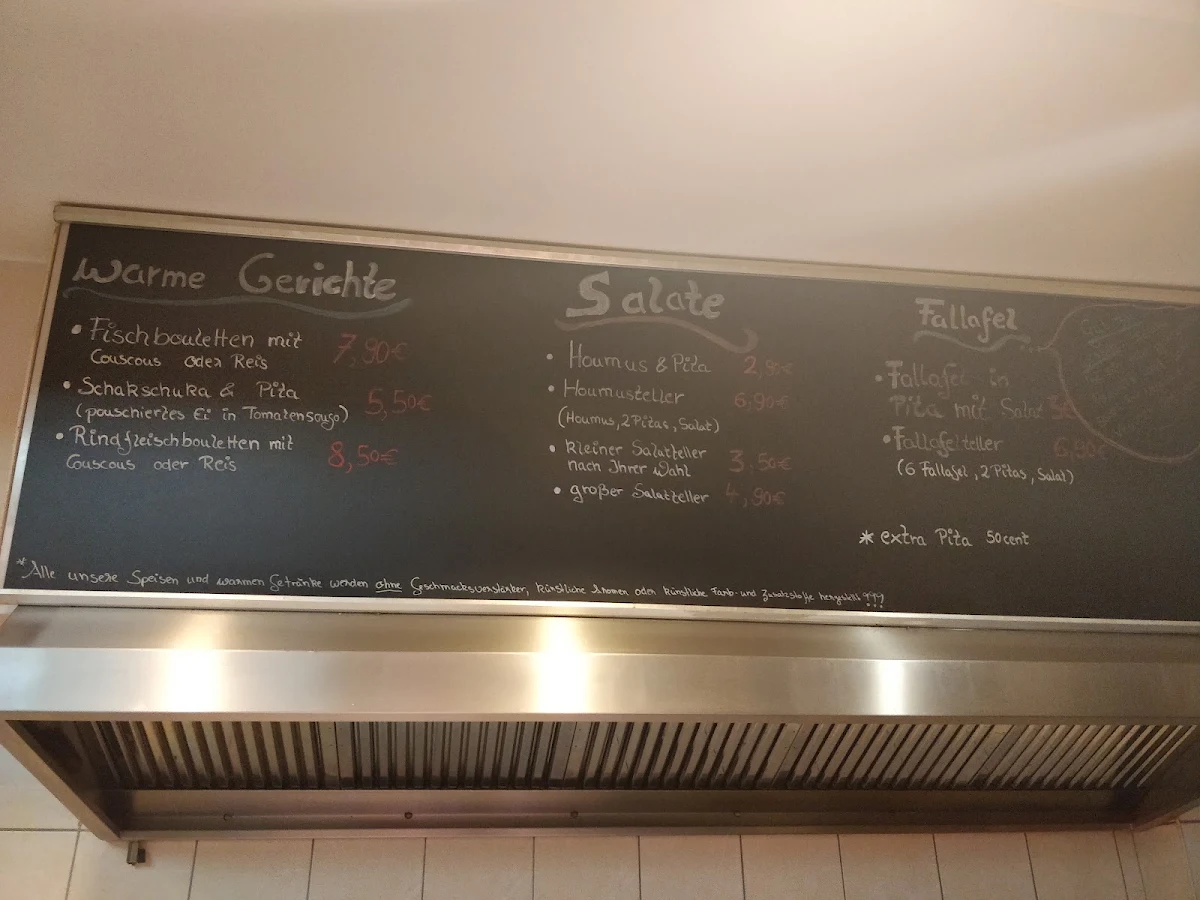 Warme Gerichte
• Fischbouletten mit 7,90€
Couscous oder Reis
• Schakschuka & Pita 5,50€
(pouschiertes Ei in Tomatensouso)
• Rindfleischbouletten mit 8,50€
Couscous oder Reis
Salate
• Houmus & Pita 2,90€
• Houmusteller 6,90€
(Houmus, 2 Pitas, Salat)
• Kleiner Salatteller
nach Ihrer Wahl 3,50€
• großer Salatteller 4,90€
Fallafel
• Fallafel in
Pita mit Salat 3€
• Fallafelteller 6,90€
(6 Fallafel, 2 Pitas, Salat)
* extra Pita 50cent
*Alle unsere Speisen und warmen Getränke werden ohne Geschmacksverstärker, künstliche Aromen oder künstliche Farb- und Zusatzstoffe hergestellt !!!